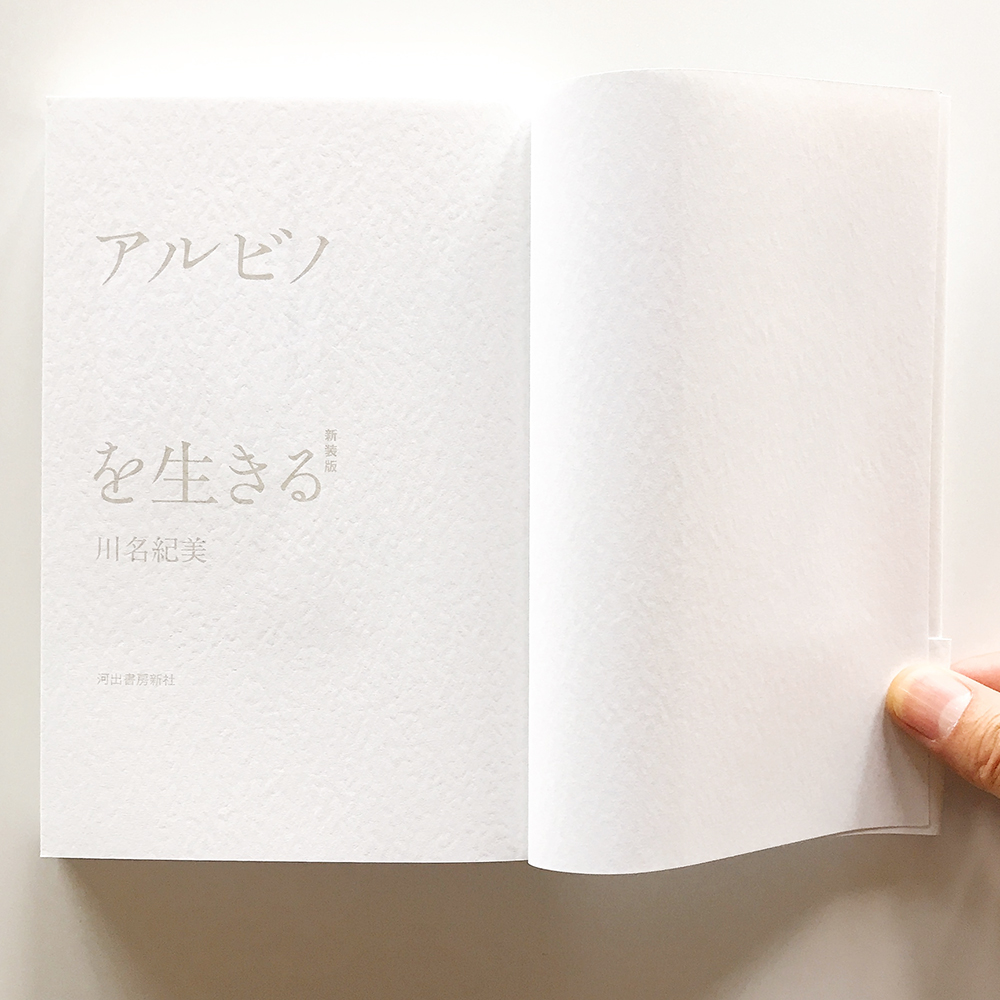 アルビノ
を生きる
新装版
川名紀美
河出書房新社